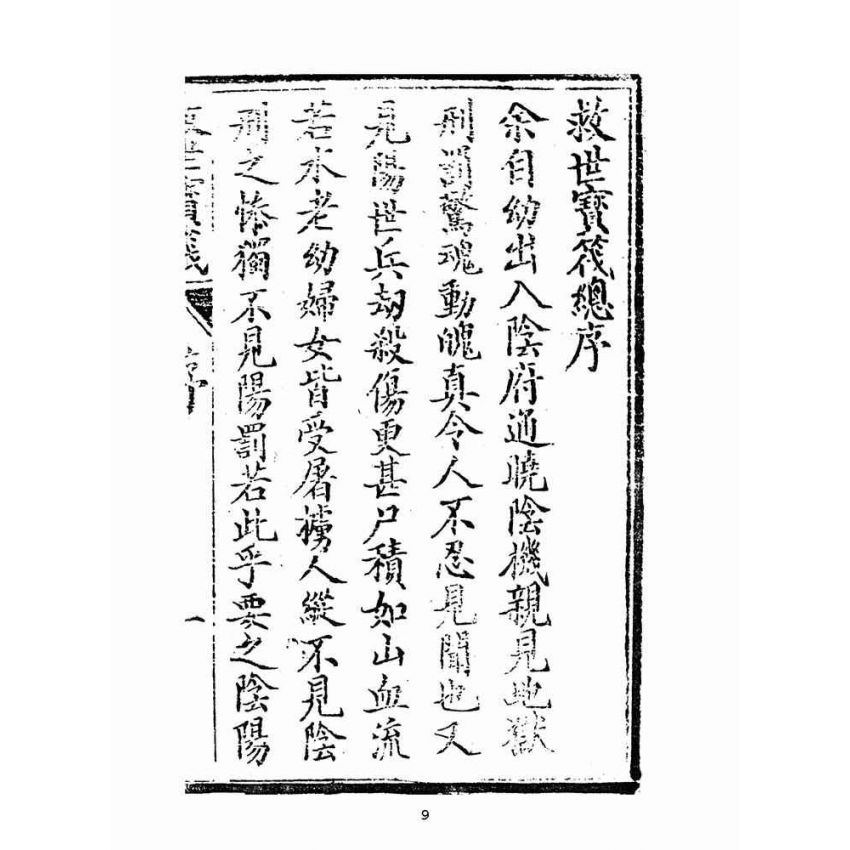 救世寶筏總序
余自幼出入陰府通曉陰機親見地獄
刑罰驚魂動魄真令人不忍見聞也又
見陽世兵劫殺傷更甚尸積如山血流
若水老幼婦女皆受屠擄人縱不見陰
刑之慘獨不見陽罰若此乎要之陰陽
世寶筏 序 一
9